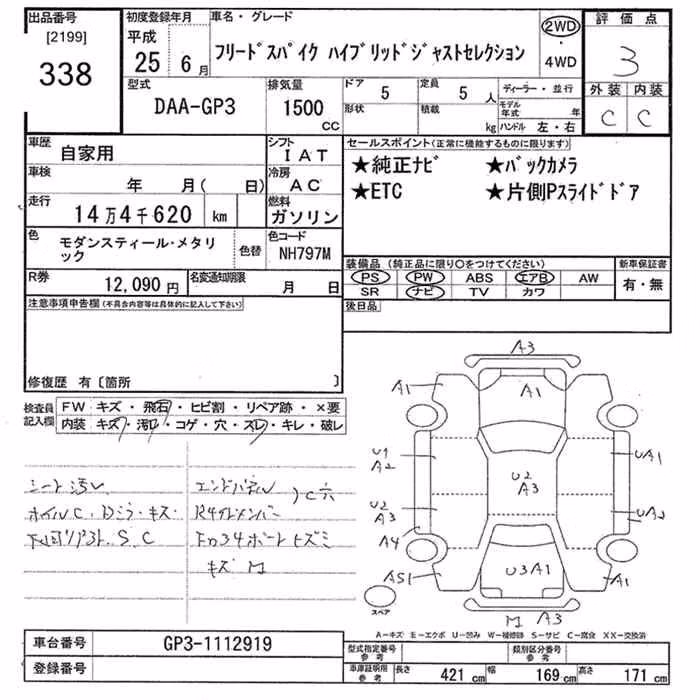 出品番号 初度登録年月 車名・グレード 評価点
[2199] 平成 2WD
338 25 6月 フリードスパイク ハイブリッドジャストセレクション ・ 3
4WD
型式 排気量 ドア 5 定員 5 人 ディーラー・並行 外装 内装
DAA-GP3 1500 CC 形状 積載 kg モデル年式 年 C C
ハンドル 左・右
車歴 自家用 シフト IAT セールスポイント(正常に機能するものに限ります)
車検 年 月( 日) 冷房 AC ★純正ナビ ★バックカメラ
走行 14万4千620 km 燃料 ガソリン ★ETC ★片側Pスライドドア
色 モダンスティール・メタリック 色替 色コード NH797M
装備品(純正品に限り○をつけてください) 新車保証書
R券 12,090円 名変通知期限 月 日 PS PW ABS エアB AW 有・無
SR ナビ TV カワ
注意事項申告欄(不具合内容等は具体的に記入して下さい) 後日品
修復歴 有〔箇所 〕
検査員記入欄 FW キズ・飛石・ヒビ割・リペア跡・×要
内装 キズ・汚れ・コゲ・穴・スレ・キレ・破レ
シート汚レ エンドパネル )C穴
ホイルC・Dミラ・キズ・
S.C
キズ M
A3
A1 A1
U1 A2 UA1
U2 A3
U2 A3 UA2
A4
AS1 U3A1 A1
スペア M A3
A-キズ E-エクボ U-凹み W-補修跡 S-サビ C-腐食 XX-交換済
車台番号 GP3-1112919 型式指定番号 参考 類別区分番号 参考
登録番号 車庫証明用 参考 長さ 421 cm 幅 169 cm 高さ 171 cm